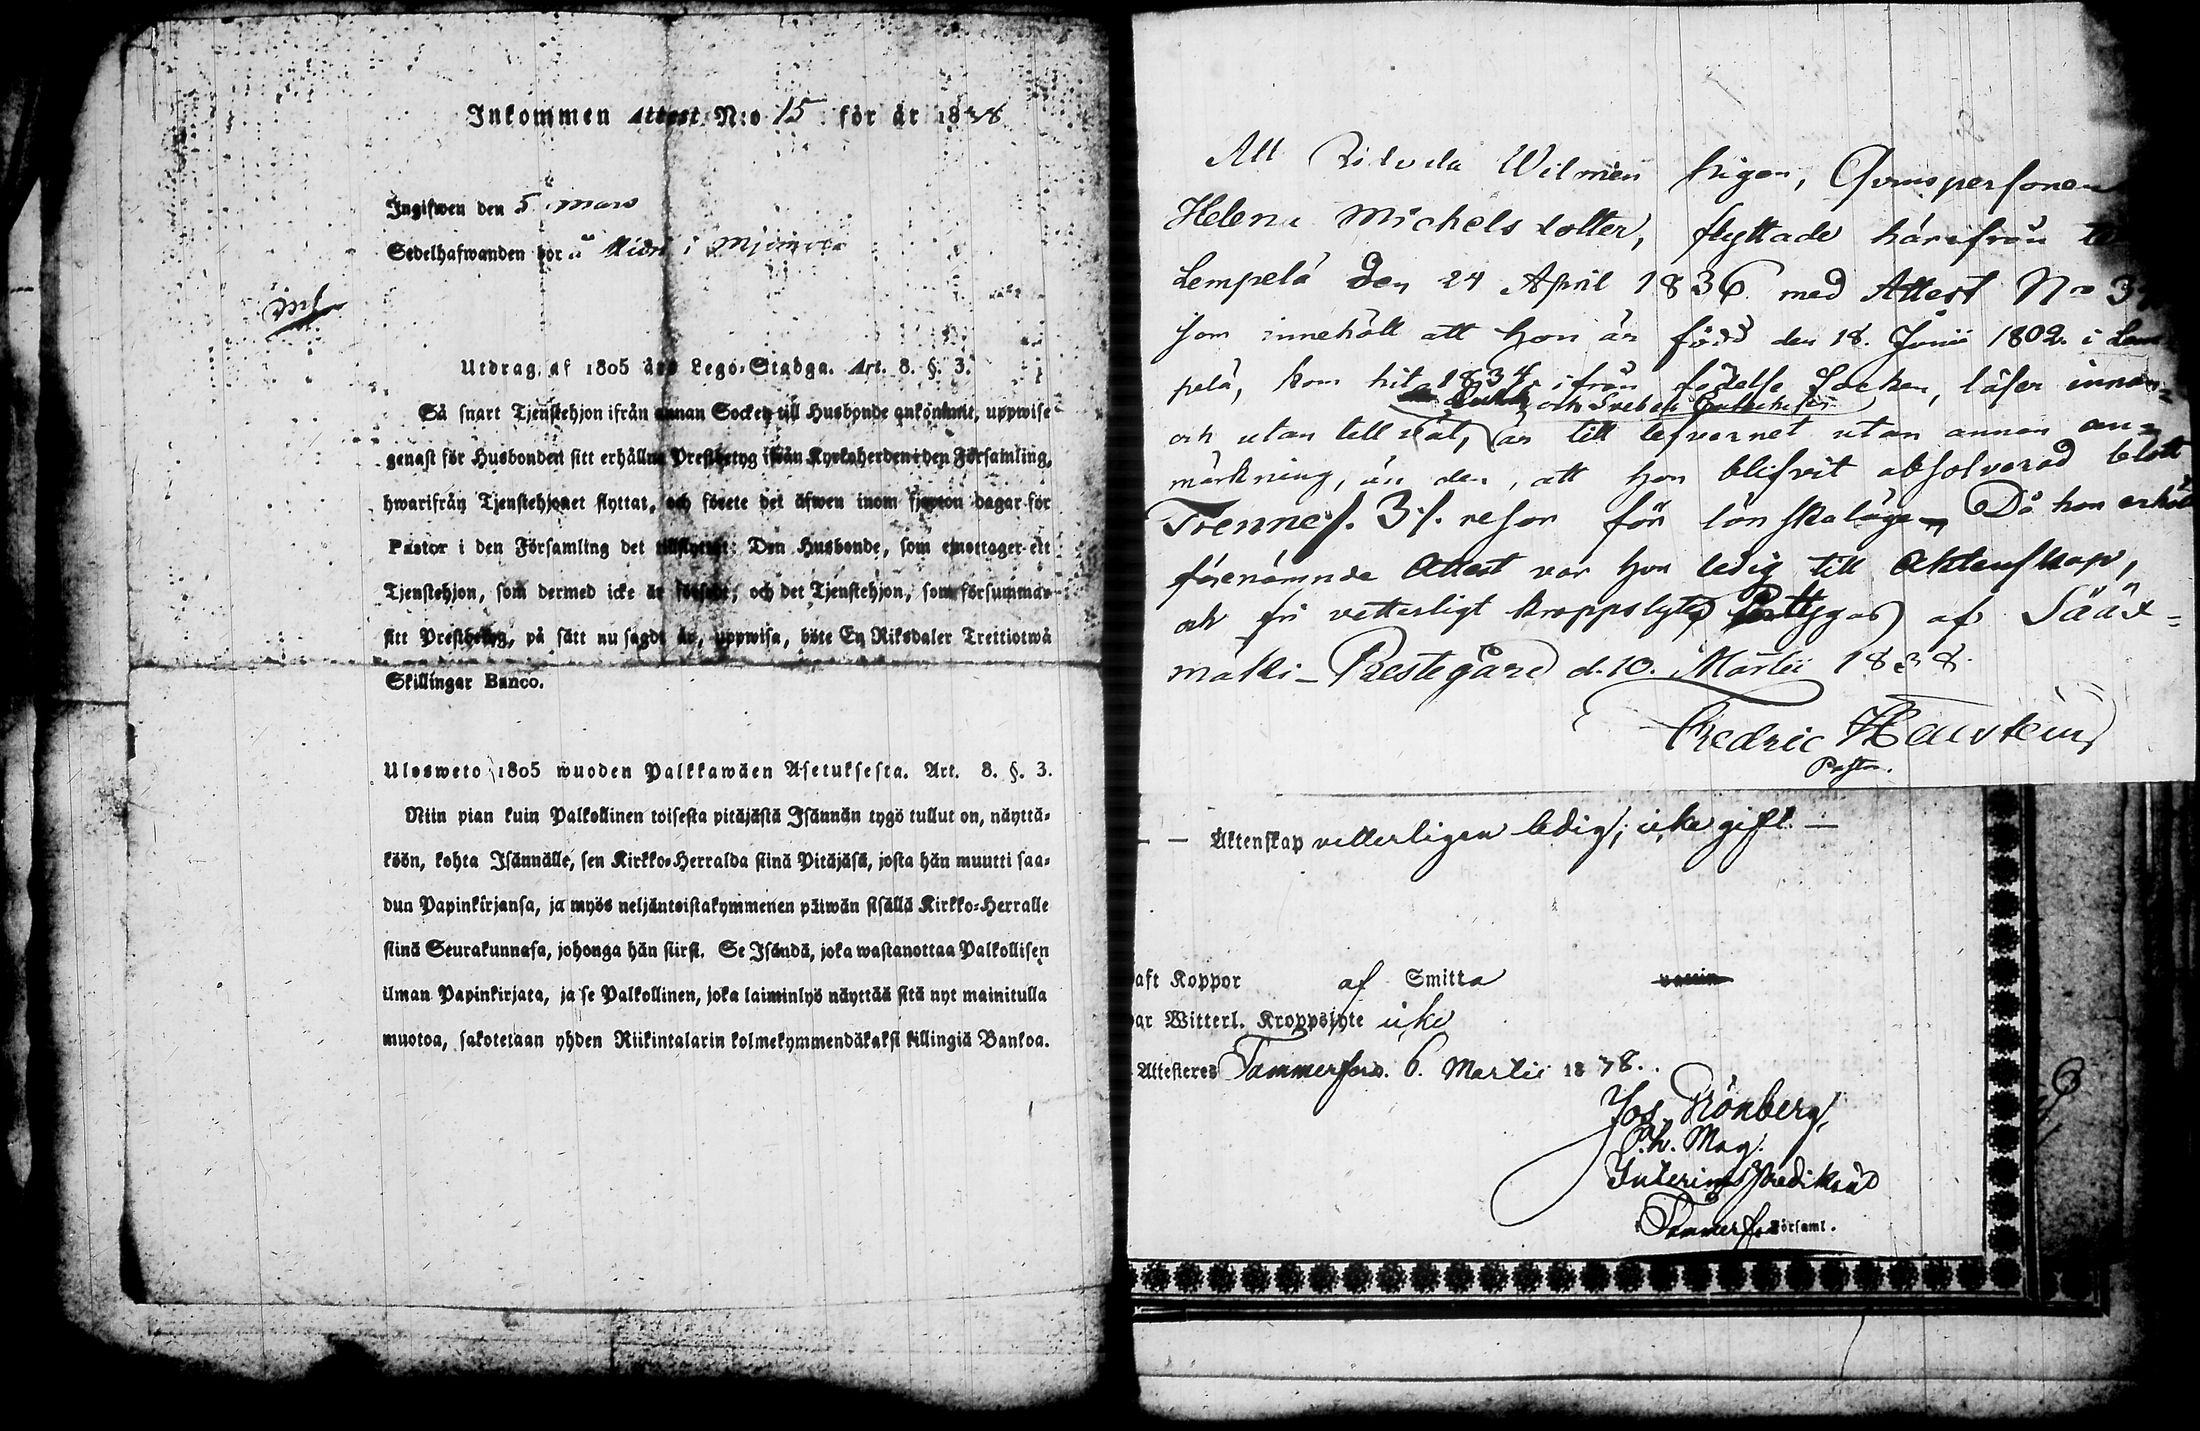 Inkommen Attest N:o 15 för år 1838
Ingifwen den 5 mars
Sedelhafwanden bor å i
Utdrag af 1805 års Lego-Stadga. Art. 8. §. 3.
Så snart Tjenstehjon ifrån annan Socken till Husbonde ankommit, uppwise
genast för Husbonden sitt erhållna Prestbetyg ifrån Kyrkoherden i den Församling,
hwarifrån Tjenstehjonet flyttat, och förete det äfwen inom fjorton dagar för
Pastor i den Församling det tillflyttat: Den Husbonde, som emottager ett
Tjenstehjon, som dermed icke är försedt, och det Tjenstehjon, som försummar
sitt Prestbetyg, på sätt nu sagdt är, uppwisa, böte En Riksdaler Trettiotwå
Skillingar Banco.
Ulosweto 1805 wuoden Palkkawäen Asetuksesta. Art. 8. §. 3.
Niin pian kuin Palkollinen toisesta pitäjästä Isännän tygö tullut on, näyttä-
köön, kohta Isännälle, sen Kirkko-Herralda siinä Pitäjäsä, josta hän muutti saa-
dun Papinkirjansa, ja myös neljäntoistakymmenen päiwän sisällä Kirkko-Herralle
siinä Seurakunnasa, johonga hän siirsi. Se Isändä, joka wastanottaa Palkollisen
ilman Papinkirjata, ja se Palkollinen, joka laiminlyö näyttää sitä nyt mainitulla
muotoa, sakotetaan yhden Riikintalarin kolmekymmendäkaksi killingiä Bankoa.
Att Ridvala Wilmen pigan, Qvinspersonen
Helena Michelsdotter, flyttade härifrån
Lempelä den 24 April 1836 med Attest No
som innehöll att hon är född den 18. Junii 1802 i Lem
pelä, kom hit 1834 ifrån födelse Socken, läser innan-
och Svebelii
och utan till nöt, är till lefvernet utan annan an-
märkning, än den, att hon blifvit absolverad blott
Trenne /. 3 /. resor för lönskaläge Då hon erhöll
förenämnde Attest var hon ledig till Äktenskap,
och fri vetterligt kroppslyte Bettygas af Sääx-
mäki - Prestegård d. 10. Martii 1838.
Fredric
Pastor.
- - Äktenskap vetterligen ledig, icke gift -
aft Koppor af Smitta
ar Witterl. Kroppslyte icke
Attesteres Tammerfors. 6. Martii 1838.
Jos. Grönberg,
Ph. Mag.
Interims Predikant
i Tammerfors Församl.